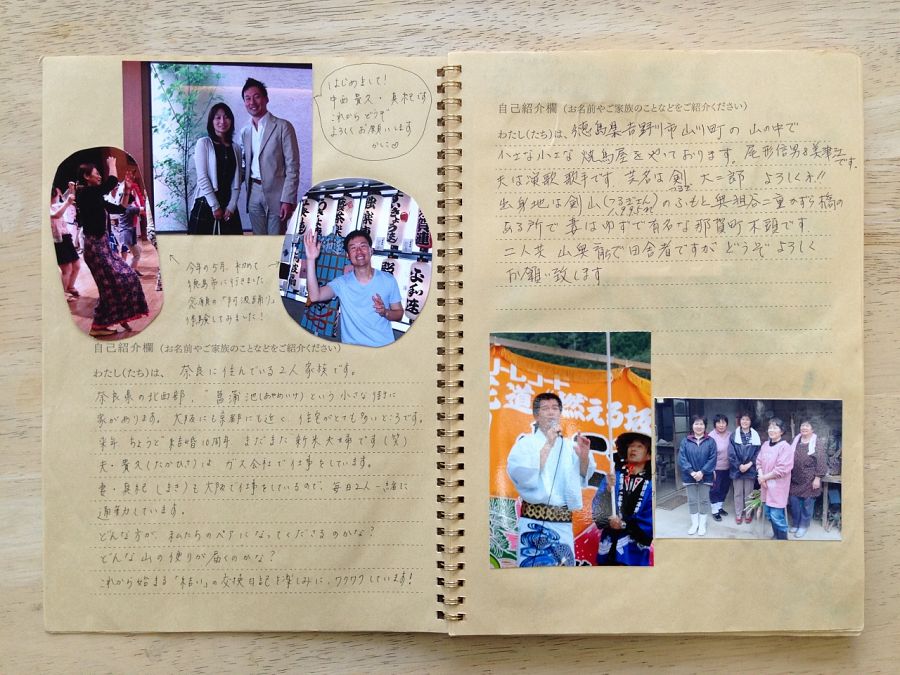 はじめまして!
中西貴久・真紀です
これから どうぞ
よろしくお願いします
今年の5月、初めて
徳島市に行きました
念願の「阿波踊り」
体験してみました!
自己紹介欄(お名前やご家族のことなどをご紹介ください)
わたし(たち)は、奈良に住んでいる2人家族です。
奈良県の北西部、"菖蒲池(あやめいけ)という小さな街に
家があります。大阪にも京都にも近い、住宅がとても多いところです。
来年 ちょうど 結婚10周年 まだまだ新米夫婦です(笑)
夫・貴久(たかひさ)は ガス会社で仕事をしています。
妻・真紀(まき)も大阪で仕事をしているので、毎日2人一緒に
通勤しています。
どんな方が、私たちのペアになってくださるのかな?
どんな山の便りが届くのかな?
これから始まる「結い」の交換日記を楽しみに、ワクワクしています!
自己紹介欄(お名前やご家族のことなどをご紹介ください)
わたし(たち)は、徳島県吉野川市山川町の 山の中で
小さな小さな 焼鳥屋をやっております。尾形信男&美津子です。
夫は演歌歌手です 芸名は剣 大二郎 よろしくネ!!
つるぎ
出身地は剣山(つるぎさん のふもと奥祖谷二重かずら橋の
ある所で 妻はゆずで有名な那賀町木頭です
二人共 山奥育ちで田舎者ですが どうぞよろしく
お願い致します